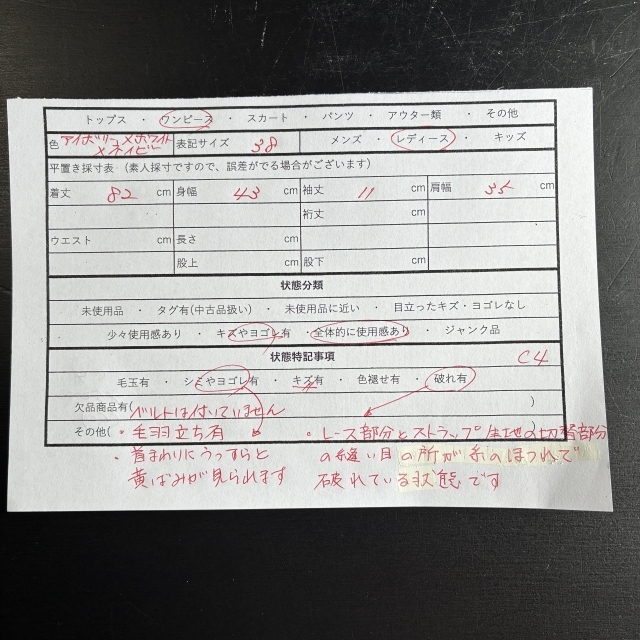 トップス ・ ワンピース ・ スカート ・ パンツ ・ アウター類 ・ その他
色 アイボリー×ホワイト×ネイビー 表記サイズ 38 メンズ ・ レディース ・ キッズ
平置き採寸表(素人採寸ですので、誤差がでる場合がございます)
着丈 82 cm 身幅 43 cm 袖丈 11 cm 肩幅 35 cm
裄丈 cm
ウエスト cm 長さ cm
股上 cm 股下 cm
状態分類
未使用品 ・ タグ有(中古品扱い) ・ 未使用品に近い ・ 目立ったキズ・ヨゴレなし
少々使用感あり ・ キズやヨゴレ有 ・ 全体的に使用感あり ・ ジャンク品
状態特記事項 C4
毛玉有 ・ シミやヨゴレ有 ・ キズ有 ・ 色褪せ有 ・ 破れ有
欠品商品有(ベルトは付いていません )
その他( ・毛羽立ち有 )
・首まわりにうっすらと
黄ばみが見られます
・レース部分とストラップ生地の切替部分
の縫い目の所が糸のほつれで
破れている状態です